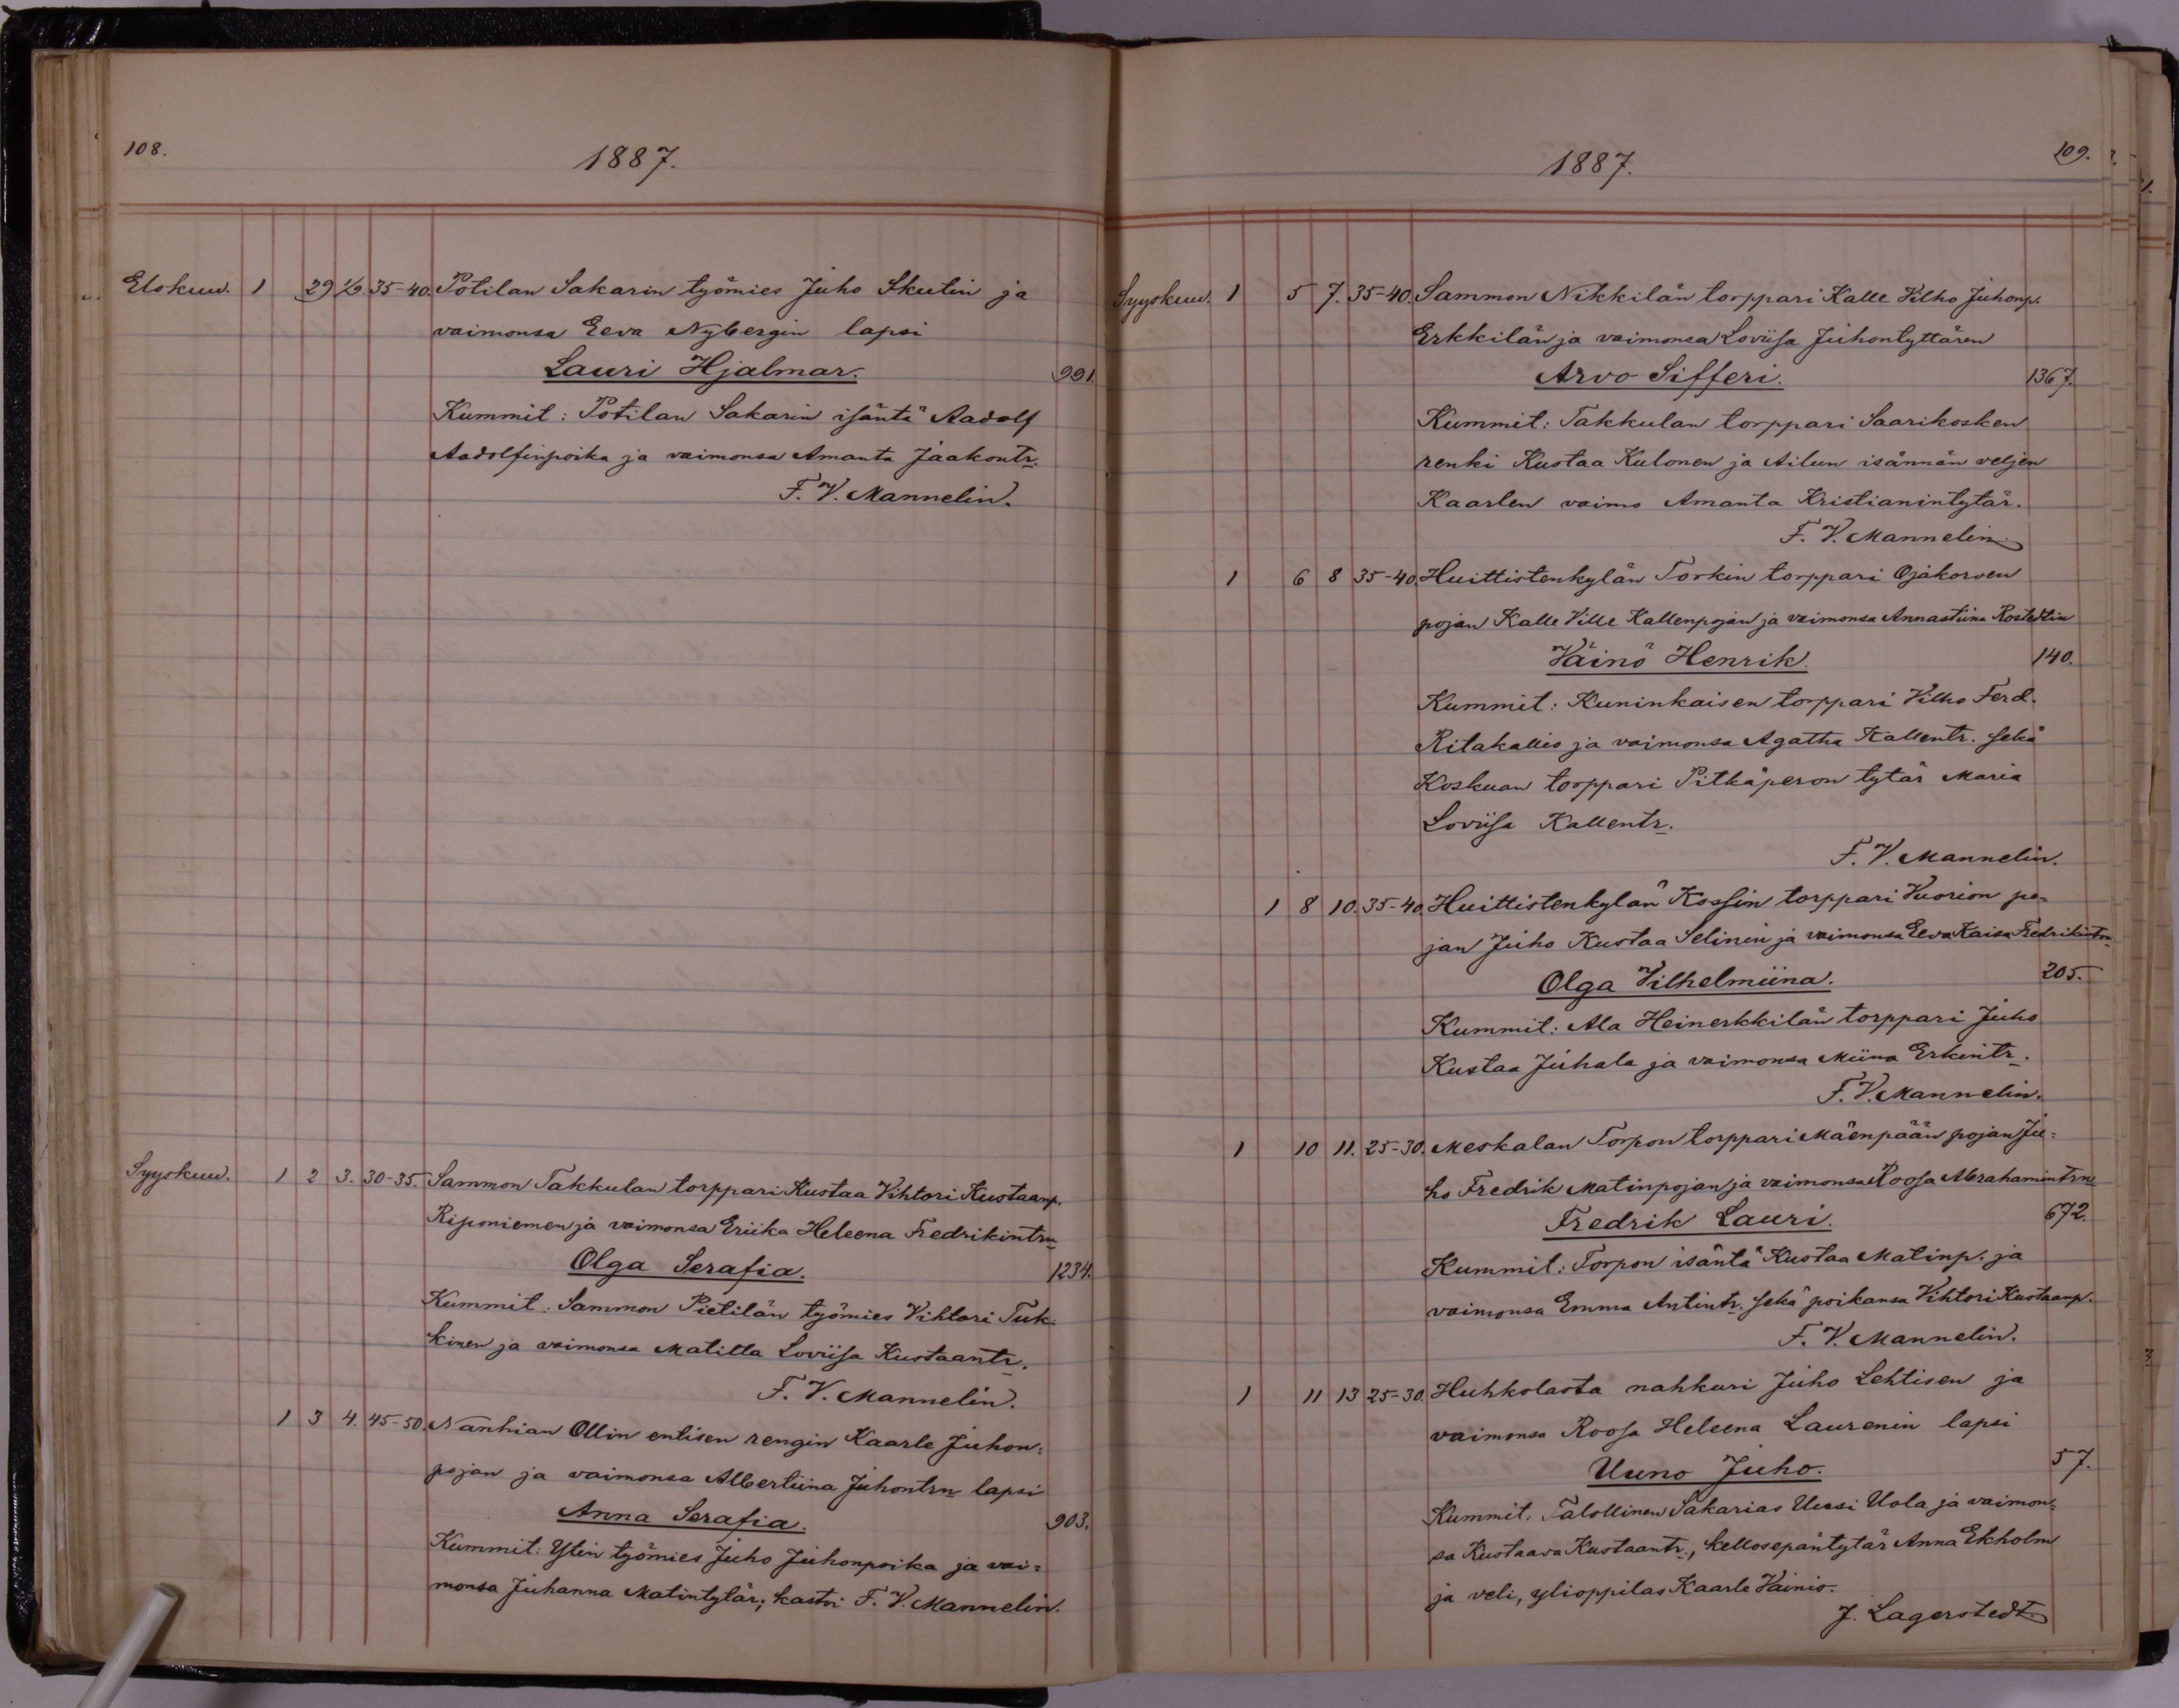 108.
1887.
Elokuu. 1 29 1/9. 35-40. Potilan Sakarin työmies Juho Skutin ja
vaimonsa Eeva Nybergin lapsi
Lauri Hjalmar. 991.
Kummit: Potilan Sakarin isäntä Aadolf
Aadolfinpoika ja vaimonsa Amanta Jaakontr.
F. V. Mannelin.
Syyskuu. 1 2 3. 30-35. Sammon Takkulan torppari Kustaa Vihtori Kustaanp.
Riponiemen ja vaimonsa Eriika Heleena Fredrikintrn
Olga Serafia. 1234.
Kummit: Sammon Pietilän työmies Vihtori Tuk-
kinen ja vaimonsa Matilta Loviisa Kustaantr.
F. V. Mannelin.
1 3 4. 45-50. Nanhian Ollin entisen rengin Kaarle Juhon-
pojan ja vaimonsa Albertiina Juhontrn lapsi
Anna Serafia. 903.
Kummit: Ytin työmies Juho Juhonpoika ja vai-
monsa Juhanna Matintytär; kastoi F. V. Mannelin.
109.
1887.
Syyskuu. 1 5 7. 35-40. Sammon Nikkilän torppari Kalle Vilho Juhonp.
Erkkilän ja vaimonsa Loviisa Juhontyttären
Arvo Sifferi. 1367.
Kummit: Takkulan torppari Saarikosken
renki Kustaa Kulonen ja Ailun isännän veljen
Kaarlen vaimo Amanta Kristianintytär.
F. V. Mannelin.
1 6 8 35-40. Huittistenkylän Torkin torppari Ojakorven
pojan Kalle Ville Kallenpojan ja vaimonsa Annastiina Rostedtin
Väinö Henrik. 140.
Kummit: Kuninkaisen torppari Vilho Ferd.
Ritakallio ja vaimonsa Agatha Kallentr. sekä
Koskuan torppari Pitkäperon tytär Maria
Loviisa Kallentr.
F. V. Mannelin.
1 8 10. 35-40. Huittistenkylän Kossin torppari Vuorion po-
jan Juho Kustaa Selinin ja vaimonsa Eeva Kaisa Fredrikintrn
Olga Vilhelmiina. 205.
Kummit: Ala Heinerkkilän torppari Juho
Kustaa Juhala ja vaimonsa Miina Erkintr.
F. V. Mannelin.
1 10 11. 25-30. Meskalan Torpon torppari Mäenpään pojan Ju-
ho Fredrik Matinpojan ja vaimonsa Roosa Abrahamintrn
Fredrik Lauri. 672.
Kummit: Torpon isäntä Kustaa Matinp. ja
vaimonsa Emma Antintr. sekä poikansa Vihtori Kustaanp.
F. V. Mannelin.
1 11 13 25-30. Huhkolasta nahkuri Juho Lehtisen ja
vaimonsa Roosa Heleena Laurenin lapsi
Uuno Juho. 57.
Kummit. Talollinen Sakarias Uusi Uola ja vaimon-
sa Kustaava Kustaantr., kellosepäntytär Anna Ekholm
ja veli, ylioppilas Kaarle Vainio.
J. Lagerstedt.